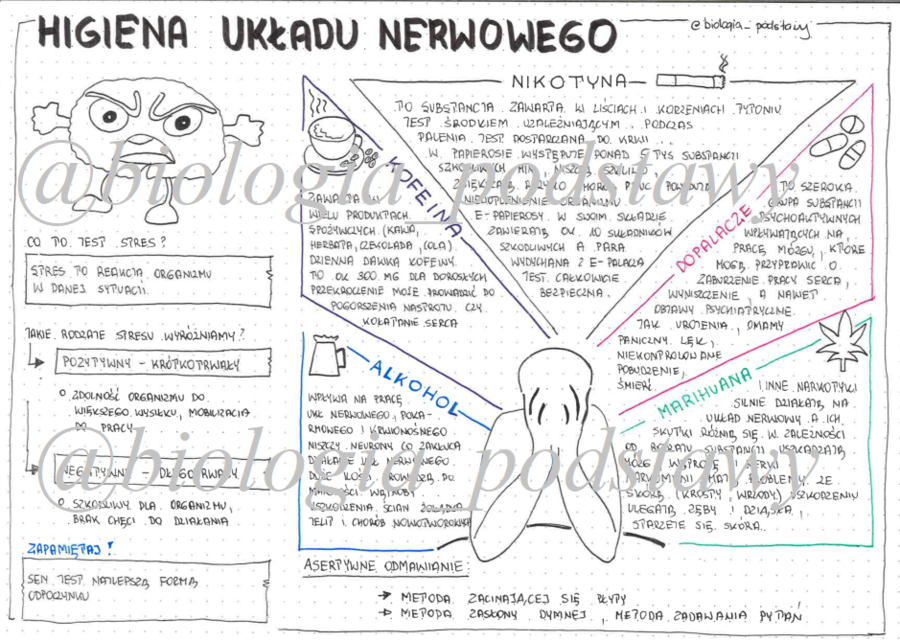 HIGIENA UKŁADU NERWOWEGO
@biologia_podstawy
CO TO JEST STRES?
STRES TO REAKCJA ORGANIZMU
W DANEJ SYTUACJI.
JAKIE RODZAJE STRESU WYRÓŻNIAMY?
POZYTYWNY - KRÓTKOTRWAŁY
ZDOLNOŚĆ ORGANIZMU DO
WIĘKSZEGO WYSIŁKU, MOBILIZACJA
DO PRACY
NEGATYWNY - DŁUGOTRWAŁY
SZKODLIWY DLA ORGANIZMU,
BRAK CHĘCI DO DZIAŁANIA
ZAPAMIĘTAJ!
SEN JEST NAJLEPSZĄ FORMĄ
ODPOCZYNKU
KOFEINA
ZAWARTA W
WIELU PRODUKTACH
SPOŻYWCZYCH (KAWA,
HERBATA, CZEKOLADA, COLA).
DZIENNA DAWKA KOFEINY
TO OK 300 MG DLA DOROSŁYCH
PRZEKROCZENIE MOŻE PROWADZIĆ DO
POGORSZENIA NASTROJU CZY
KOŁATANIE SERCA
NIKOTYNA
TO SUBSTANCJA ZAWARTA W LIŚCIACH I KORZENIACH TYTONIU
JEST ŚRODKIEM UZALEŻNIAJĄCYM... PODCZAS
PALENIA JEST DOSTARCZANA DO KRWI...
W PAPIEROSIE WYSTĘPUJE PONAD 5 TYS SUBSTANCJI
SZKODLIWYCH MIN. NISZCZĄ
ZWIĘKSZAJĄ RYZYKO CHORÓB PŁUC POWODUJĄ
NIEDOTLENIENIE ORGANIZMU
E-PAPIEROSY W SWOIM SKŁADZIE
ZAWIERAJĄ OK 10 SKŁADNIKÓW
SZKODLIWYCH A PARA
WYDYCHANA Z E-PALACZA
JEST CAŁKOWICIE
BEZPIECZNA.
DOPALACZE
TO SZEROKA
GRUPA SUBSTANCJI
PSYCHOAKTYWNYCH
WPŁYWAJĄCYCH NA
PRACĘ MÓZGU, KTÓRE
MOGĄ PRZYPRAWIĆ O
ZABURZENIE PRACY SERCA,
WYNISZCZENIE, A NAWET
OBJAWY PSYCHIATRYCZNE.
JAK UROJENIA, OMAMY
PANICZNY LĘK,
NIEKONPROLOWANE
POBUDZENIE,
ŚMIERĆ
ALKOHOL
WPŁYWA NA PRACĘ
UKŁ NERWOWEGO, POKA-
RMOWEGO I KRWIONOŚNEGO
NISZCZY NEURONY CO ZAKŁUCA
DZIAŁANIE UKŁ NERWOWEGO
DUŻE ILOŚCI PROWADZĄ DO
MARSKOŚCI WĄTROBY
USZKODZENIA ŚCIAN ŻOŁĄDKA
JELIT I CHORÓB NOWOTWOROWYCH
MARIHUANA
I INNE NARKOTYKI
SILNIE DZIAŁAJĄ NA
UKŁAD NERWOWY A ICH
SKUTKI RÓŻNIĄ SIĘ W ZALEŻNOŚCI
OD RODZAJU SUBSTANCJI USZKADZAJĄ
MÓZG, WĄTROBĘ I NERKI
NARKOMANI MAJĄ PROBLEMY ZE
SKÓRĄ (KROSTY, WRZODY) USZKODZENIU
ULEGAJĄ ZĘBY I DZIĄSŁA,
STARZEJE SIĘ SKÓRA..
ASERTYWNE ODMAWIANIE
METODA ZACINAJĄCEJ SIĘ PŁYTY
METODA ZASŁONY DYMNEJ, METODA ZADAWANIA PYTAŃ
@biologia_podstawy
@biologia_podstawy